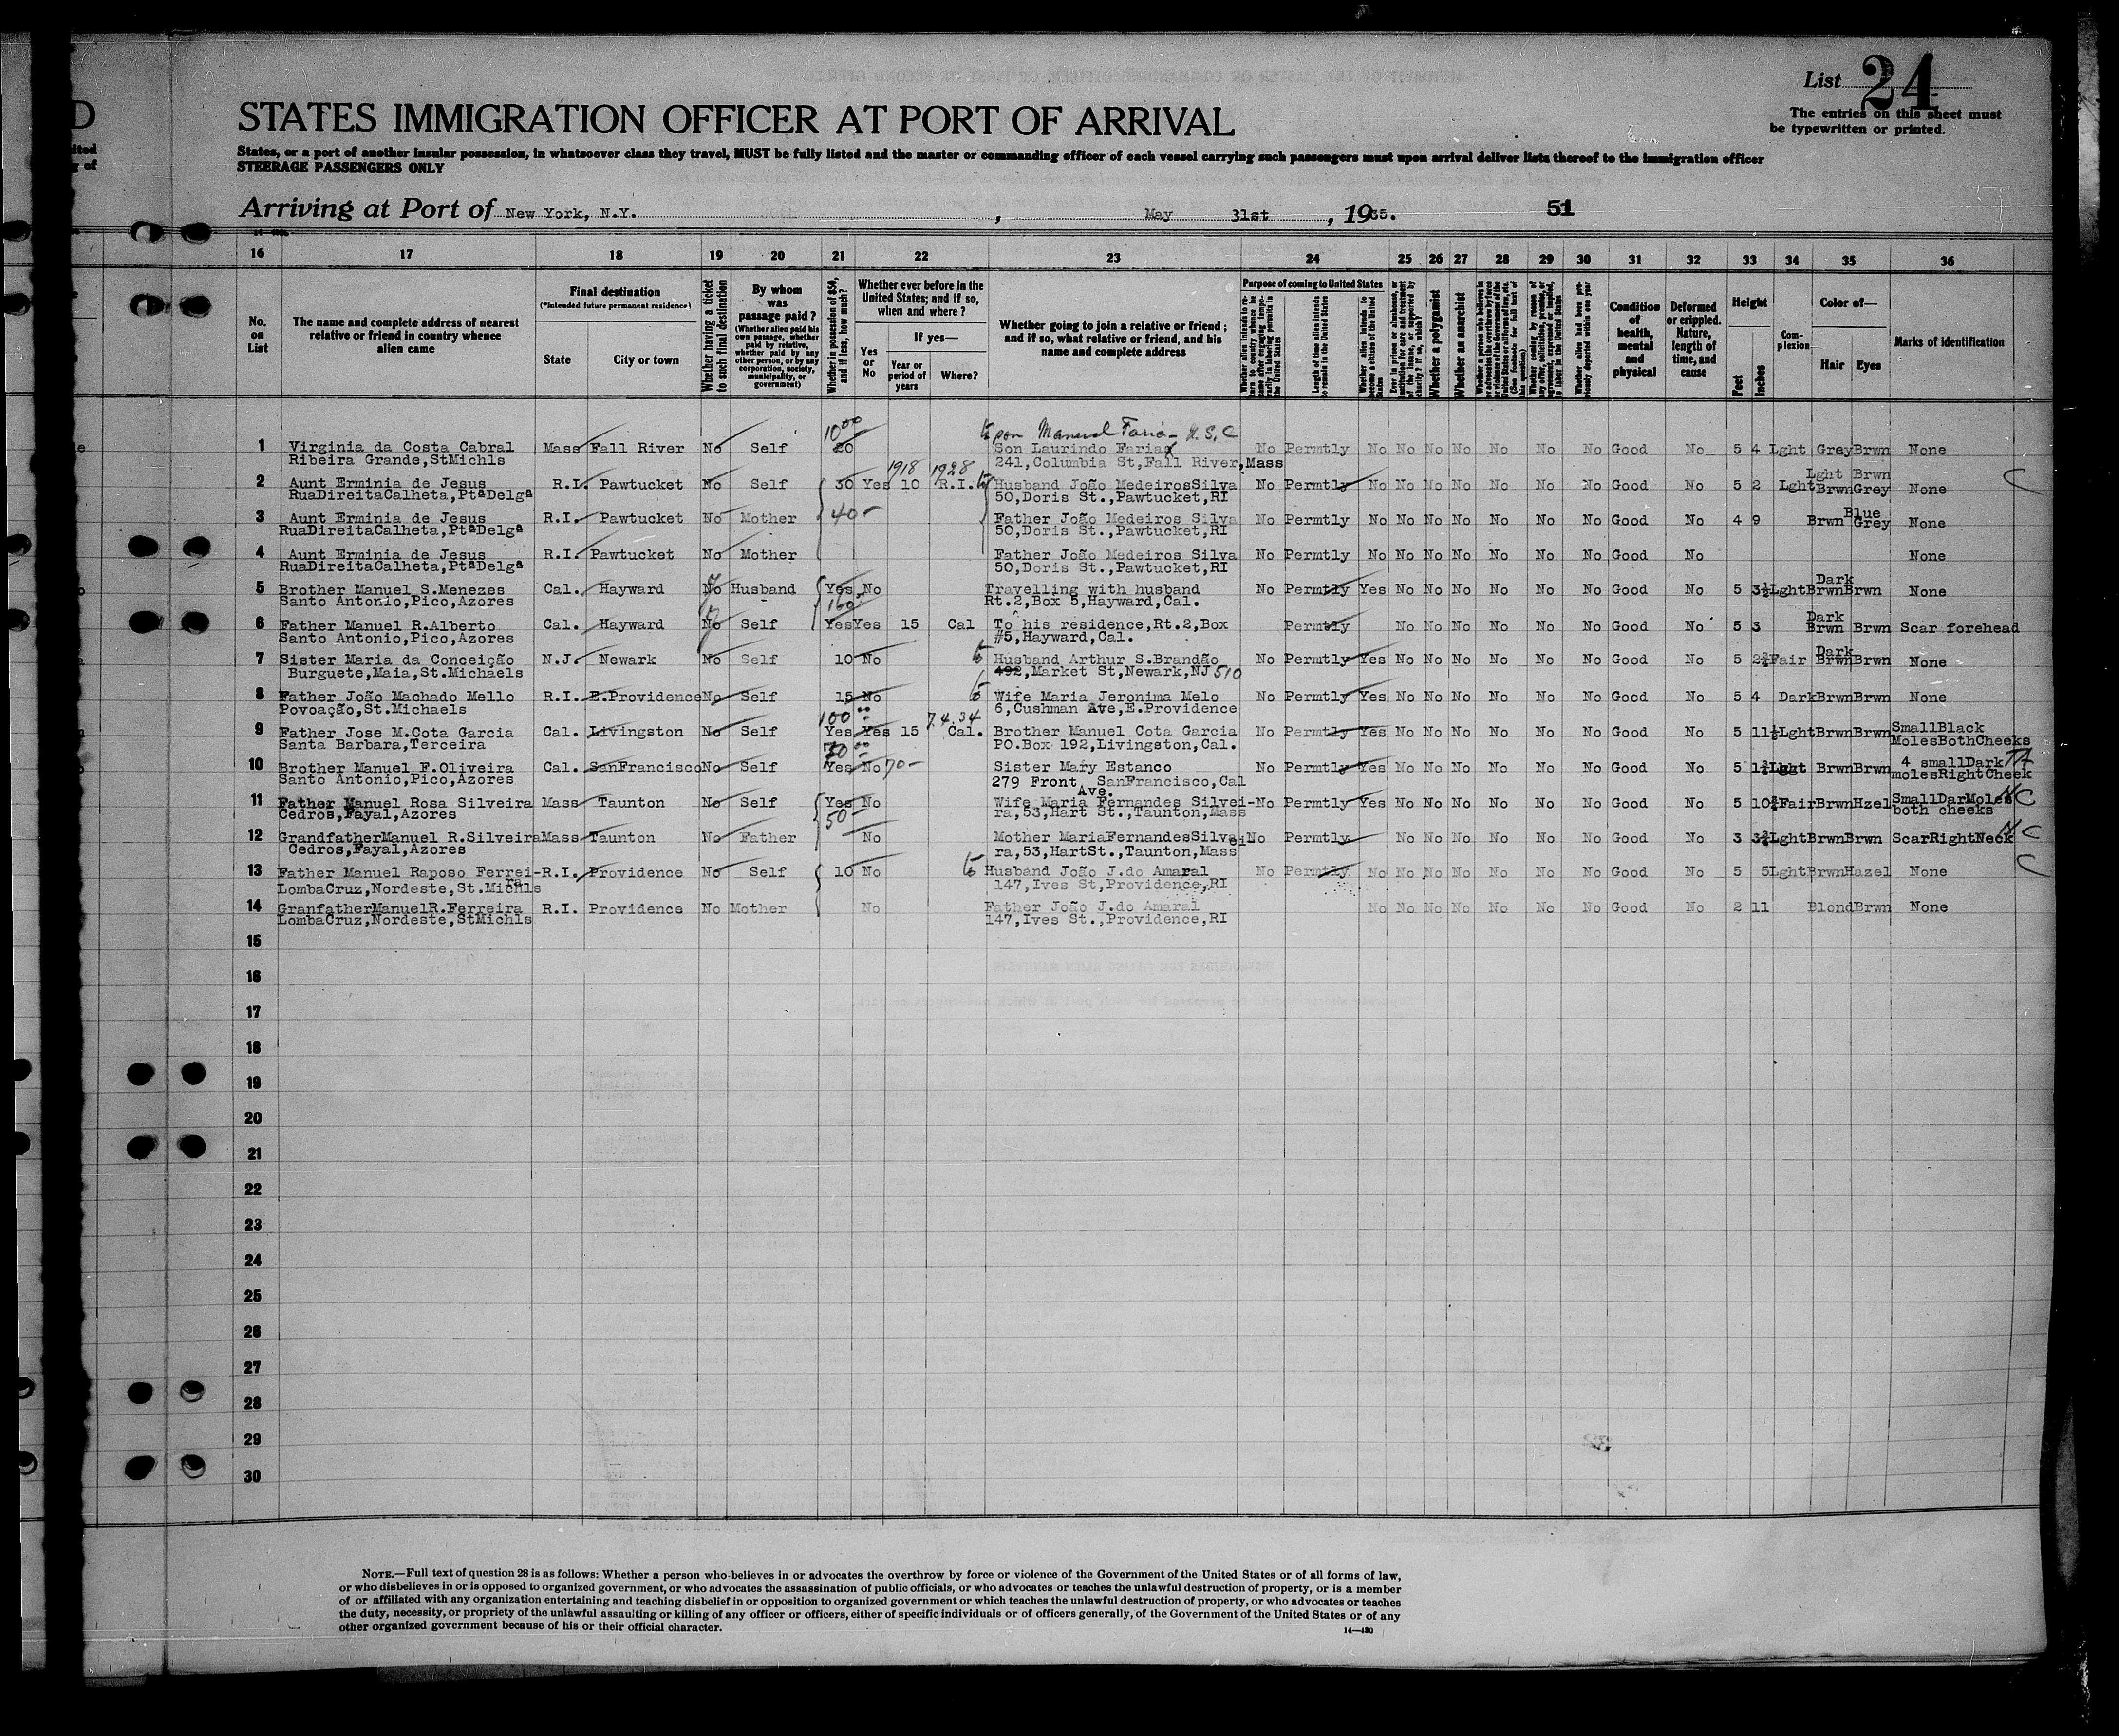 List 24
The entries on this sheet must
be typewritten or printed.
STATES IMMIGRATION OFFICER AT PORT OF ARRIVAL
States, or a port of another insular possession, in whatsoever class they travel, MUST be fully listed and the master or commanding officer of each vessel carrying such passengers must upon arrival deliver lists thereof to the immigration officer
STEERAGE PASSENGERS ONLY
Arriving at Port of New York, N.Y. , May 31st , 1935. 51
16 17 18 19 20 21 22 23 24 25 26 27 28 29 30 31 32 33 34 35 36
No. on List
The name and complete address of nearest relative or friend in country whence alien came
Final destination
(*Intended future permanent residence)
State City or town
Whether having a ticket to such final destination
By whom was passage paid?
(Whether alien paid his own passage, whether paid by relative, whether paid by any other person, or by any corporation, society, municipality, or government)
Whether in possession of $50, and if less, how much?
Whether ever before in the United States; and if so, when and where?
Yes or No
If yes—
Year or period of years
Where?
Whether going to join a relative or friend; and if so, what relative or friend, and his name and complete address
Purpose of coming to United States
Length of time alien intends to remain in the United States
Whether alien intends to become a citizen of the United States
Whether a polygamist
Whether an anarchist
Condition of health, mental and physical
Deformed or crippled. Nature, length of time, and cause
Height
Feet Inches
Complexion
Color of—
Hair Eyes
Marks of identification
10 00 upon Manuel Faria - U.S.C
1 Virginia da Costa Cabral Mass Fall River No Self 20 Son Laurindo Faria No Permtly No No No No No No No Good No 5 4 Lght Grey Brwn None
Ribeira Grande,StMichls 241,Columbia St,Fall River,Mass
1918 1928 Lght Brwn
2 Aunt Erminia de Jesus R.I. Pawtucket No Self 30 Yes 10 R.I. Husband João MedeirosSilva No Permtly No No No No No No No Good No 5 2 Lght Brwn Grey None C
RuaDireitaCalheta,PtªDelgª 50,Doris St.,Pawtucket,RI
3 Aunt Erminia de Jesus R.I. Pawtucket No Mother 40- Father João Medeiros Silva No Permtly No No No No No No No Good No 4 9 Brwn Blue Grey None
RuaDireitaCalheta,PtªDelgª 50,Doris St.,Pawtucket,RI
4 Aunt Erminia de Jesus R.I. Pawtucket No Mother Father João Medeiros Silva No Permtly No No No No No No No Good No None
RuaDireitaCalheta,PtªDelgª 50,Doris St.,Pawtucket,RI
Dark
5 Brother Manuel S.Menezes Cal. Hayward No Husband Yes No Travelling with husband No Permtly Yes No No No No No No Good No 5 3½ Lght Brwn Brwn None
Santo Antonio,Pico,Azores 160 Rt.2,Box 5,Hayward,Cal.
Dark
6 Father Manuel R.Alberto Cal. Hayward No Self Yes Yes 15 Cal To his residence,Rt.2,Box Permtly No No No No No No No Good No 5 3 Brwn Brwn Scar forehead
Santo Antonio,Pico,Azores #5,Hayward,Cal.
Dark
7 Sister Maria da Conceição N.J. Newark No Self 10 No Husband Arthur S.Brandão No Permtly Yes No No No No No No Good No 5 2¾ Fair Brwn Brwn None
Burguete,Maia,St.Michaels 492,Market St,Newark,NJ 510
8 Father João Machado Mello R.I. E.Providence No Self 15 No Wife Maria Jeronima Melo No Permtly Yes No No No No No No Good No 5 4 Dark Brwn Brwn None
Povoação,St.Michaels 6,Cushman Ave,E.Providence
100 00 7.4.34
9 Father Jose M.Cota Garcia Cal. Livingston No Self Yes Yes 15 Cal. Brother Manuel Cota Garcia No Permtly Yes No No No No No No Good No 5 11½ Lght Brwn Brwn SmallBlack
Santa Barbara,Terceira PO.Box 192,Livingston,Cal. MolesBothCheeks
70 00
10 Brother Manuel F.Oliveira Cal. SanFrancisco No Self Yes No 70- Sister Mary Estanco No Permtly Yes No No No No No No Good No 5 1¾ Lght Brwn Brwn 4 smallDark
Santo Antonio,Pico,Azores 279 Front SanFrancisco,Cal molesRightCheek
Ave.
11 Father Manuel Rosa Silveira Mass Taunton No Self Yes No Wife Maria Fernandes Silvei- No Permtly Yes No No No No No No Good No 5 10¾ Fair Brwn Hzel SmallDarMoles NC
Cedros,Fayal,Azores 50- ra,53,Hart St.,Taunton,Mass both cheeks
12 GrandfatherManuel R.Silveira Mass Taunton No Father No Mother MariaFernandesSilvei No Permtly No No No No No No No Good No 3 3¾ Lght Brwn Brwn ScarRightNeck NC
Cedros,Fayal,Azores ra,53,HartSt.,Taunton,Mass
13 Father Manuel Raposo Ferrei- R.I. Providence No Self 10 No Husband João J.do Amaral No Permtly No No No No No No No Good No 5 5 Lght Brwn Hazel None C
ra
LombaCruz,Nordeste,St.Michls 147,Ives St,Providence,RI
14 GranfatherManuelR.Ferreira R.I. Providence No Mother No Father João J.do Amaral No No No No No No No Good No 2 11 Blond Brwn None
LombaCruz,Nordeste,StMichls 147,Ives St.,Providence,RI
15
16
17
18
19
20
21
22
23
24
25
26
27
28
29
30
NOTE.—Full text of question 28 is as follows: Whether a person who believes in or advocates the overthrow by force or violence of the Government of the United States or of all forms of law,
or who disbelieves in or is opposed to organized government, or who advocates the assassination of public officials, or who advocates or teaches the unlawful destruction of property, or is a member
of or affiliated with any organization entertaining and teaching disbelief in or opposition to organized government or which teaches the unlawful destruction of property, or who advocates or teaches
the duty, necessity, or propriety of the unlawful assaulting or killing of any officer or officers, either of specific individuals or of officers generally, of the Government of the United States or of any
other organized government because of his or their official character.
14—430